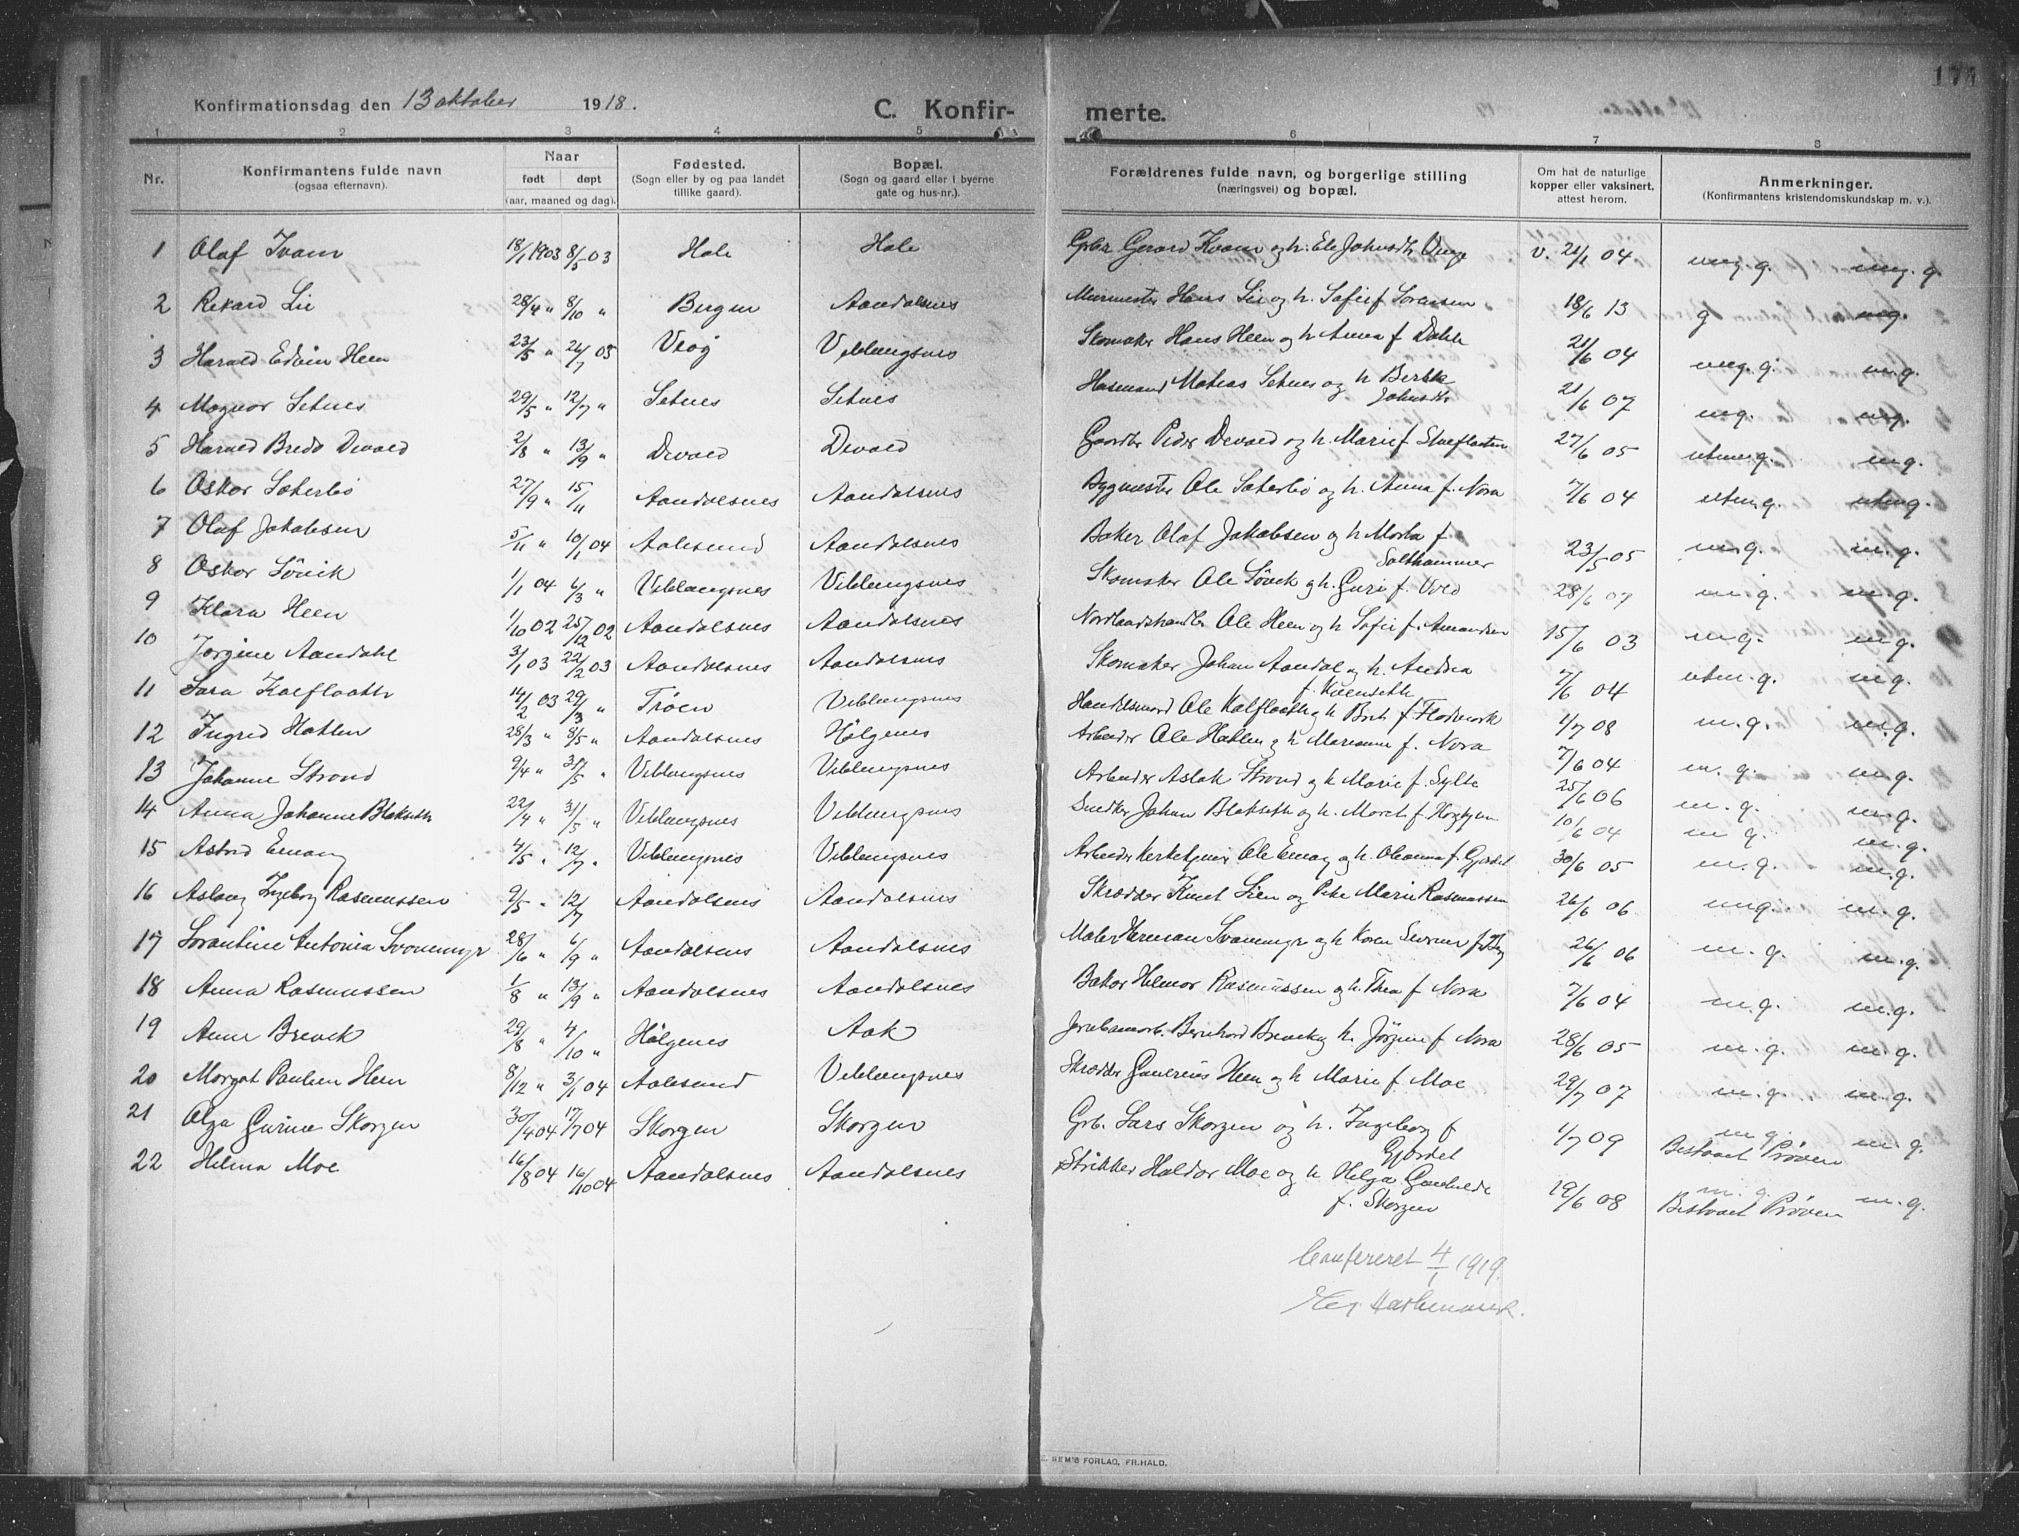 174
Konfirmationsdag den 13 oktober 1918.
C. Konfir-
merte.
1 2 3 4 5 6 7 8
Nr. Konfirmantens fulde navn (ogsaa efternavn). Naar født døpt (aar, maaned og dag). Fødested. (Sogn eller by og paa landet tillike gaard). Bopæl. (Sogn og gaard eller i byerne gate og hus-nr.). Forældrenes fulde navn, og borgerlige stilling (næringsvei) og bopæl. Om hat de naturlige kopper eller vaksinert, attest herom. Anmerkninger. (Konfirmantens kristendomskundskap m. v.).
1 Olaf Kvam 18/1 1903 8/5 03 Hole Hole Gbr. Gerard Kvam og h. Eli Johnsdtr Unge v. 21/1 04 meg. g. meg. g.
2 Rikard Lie 28/4 " 8/10 " Bergen Aandalsnes Murmester Hans Lie og h. Sofie f Sørensen 18/6 13 g mg.
3 Harald Edvin Heen 23/5 " 26/7 03 Veøy Veblungsnes Skomaker Hans Heen og h Anna f Dahle 21/6 04 meg. g. m. g.
4 Magnar Setnes 29/5 " 12/7 " Setnes Setnes Husmand Matias Setnes og h Berthe Johnsdtr 21/6 07 mg. mg.
5 Harald Bredo Devold 2/8 " 13/9 " Devold Devold Gaardbr Peder Devold og h. Marie f Stueflaaten 27/6 05 utm. g. m g.
6 Oskar Sæterbø 27/9 " 15/11 Aandalsnes Aandalsnes Bygmester Ole Sæterbø og h. Anna f. Nora 7/6 04 utm g. utm g.
7 Olaf Jakobsen 5/11 " 10/1 04 Aalesund Aandalsnes Baker Olaf Jakobsen og h Marta f Salthammer 23/5 05 m g. m. g.
8 Oskar Søvik 1/1 04 6/3 " Veblungsnes Veblungsnes Skomaker Ole Søvik og h. Guri f. Vold 28/6 07 m. g. m. g.
9 Klara Heen 1/10 02 25/12 02 Aandalsnes Aandalsnes Nordlandshandler Ole Heen og h Sofie f. Amundsen 15/6 03 m g. m g.
10 Jørgine Aandahl 3/1 03 22/2 03 Aandalsnes Aandalsnes Skomaker Johan Aandal og h. Andrea f. Kvenseth 7/6 04 utm. g. m g.
11 Sara Kalflaath 14/2 03 29/3 " Trøen Veblungsnes Handelsmand Ole Kalflaath og h Berit f. Flodmark 1/7 08 m. g. m. g.
12 Ingrid Hatlen 28/3 " 8/5 " Aandalsnes Hølgenes Arbeider Ole Hatlen og h Marianne f. Nora 7/6 04 m. g. m. g.
13 Johanne Strand 9/4 " 31/5 " Veblungsnes Veblungsnes Arbeider Aslak Strand og h Marie f. Sylte 25/6 06 m. g. m. g.
14 Anna Johanne Blakseth 22/4 " 31/5 " Veblungsnes Veblungsnes Snedker Johan Blakseth og h. Maret f. 10/6 04 m g. m. g.
15 Astrid Emoy 4/5 " 12/7 " Veblungsnes Veblungsnes Arbeider Kirketjener Ole Emoy og h. Oleanna f. Gjerdet 30/6 05 m. g. m. g.
16 Aslaug Ingeborg Rasmussen 9/5 " 12/7 Aandalsnes Aandalsnes Skrædder Knut Lien og Pike Marie Rasmussen 26/6 06 mg. m. g.
17 Lorentine Antonia Svanemyr 28/6 " 6/9 " Aandalsnes Aandalsnes Maler Herman Svanemyr og h Karen 26/6 06 m. g. m. g.
18 Anna Rasmussen 1/8 " 13/9 " Aandalsnes Aandalsnes Baker Helmer Rasmussen og h. Thea f Nora 7/6 04 m. g. m. g.
19 Anne Brevik 29/8 " 4/10 " Hølgenes Aak Jernbanearb. Bernhard Brevik og h. Jørgine f Nora 28/6 05 m. g. m. g.
20 Margot Pauline Heen 8/12 " 3/1 04 Aalesund Veblungsnes Skrædder Gunerius Heen og h Marie f Moe 29/7 07 m. g. m. g.
21 Olga Gurine Skorgen 30/4 04 17/7 04 Skorgen Skorgen Grb. Lars Skorgen og h. Ingeborg f Gjerdet 1/7 09 m g. Bestaaet Prøven m. g.
22 Helma Moe 16/8 04 16/10 04 Aandalsnes Aandalsnes Strikker Haldor Moe og h Helga Gunhilde f. Skorgen 19/6 08 m. g. Bestaaet Prøven m. g.
Confereret 4/1 1919.
E. SEM'S FORLAG, FR.HALD.